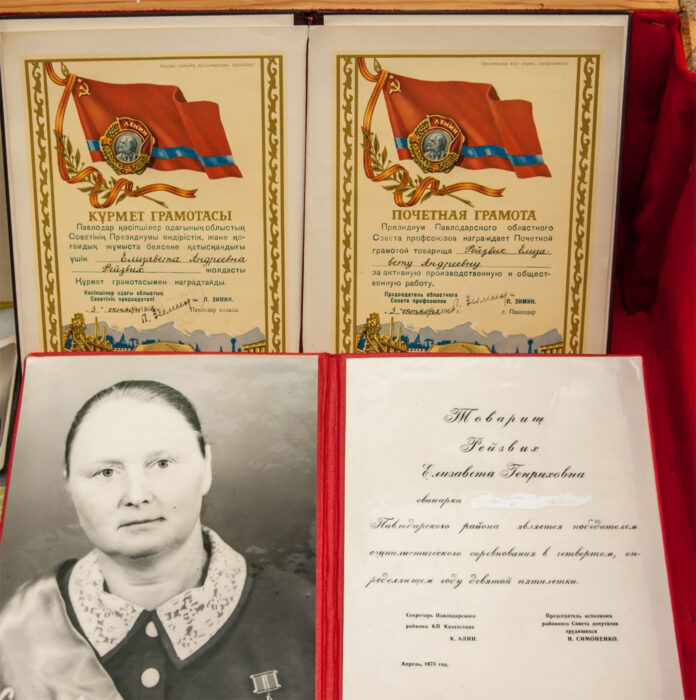 Барлық елдердің пролетарлары, бірігіңдер!
ЛЕНИН
ҚҰРМЕТ ГРАМОТАСЫ
Павлодар кәсіпшілер одағының облыстық
Советінің Президиумы өндірістік, және қо-
ғамдық жұмыста белсене қатысқандығы
үшін Елизавета Андреевна
Рейзвих жолдасты
Құрмет грамотасымен наградтайды.
Кәсіпшілер одағы облыстық
Советінің председателі П. ЗИМИН.
3 октября Павлодар қаласы.
Пролетарии всех стран, соединяйтесь!
ЛЕНИН
ПОЧЕТНАЯ ГРАМОТА
Президиум Павлодарского областного
Совета профсоюзов награждает Почетной
грамотой товарища Рейзвих Елиза-
вету Андреевну
за активную производственную и общест-
венную работу.
Председатель областного
Совета профсоюзов П. ЗИМИН.
3 октября г. г. Павлодар
Товарищ
Рейзвих
Елизавета Генриховна
свинарка
Павлодарского района является победителем
социалистического соревнования в четвертом, оп-
ределяющем году девятой пятилетки.
Секретарь Павлодарского
райкома КП Казахстана
К. АЛИН.
Председатель исполкома
районного Совета депутатов
трудящихся
Н. СИМОНЕНКО.
Апрель, 1975 год.